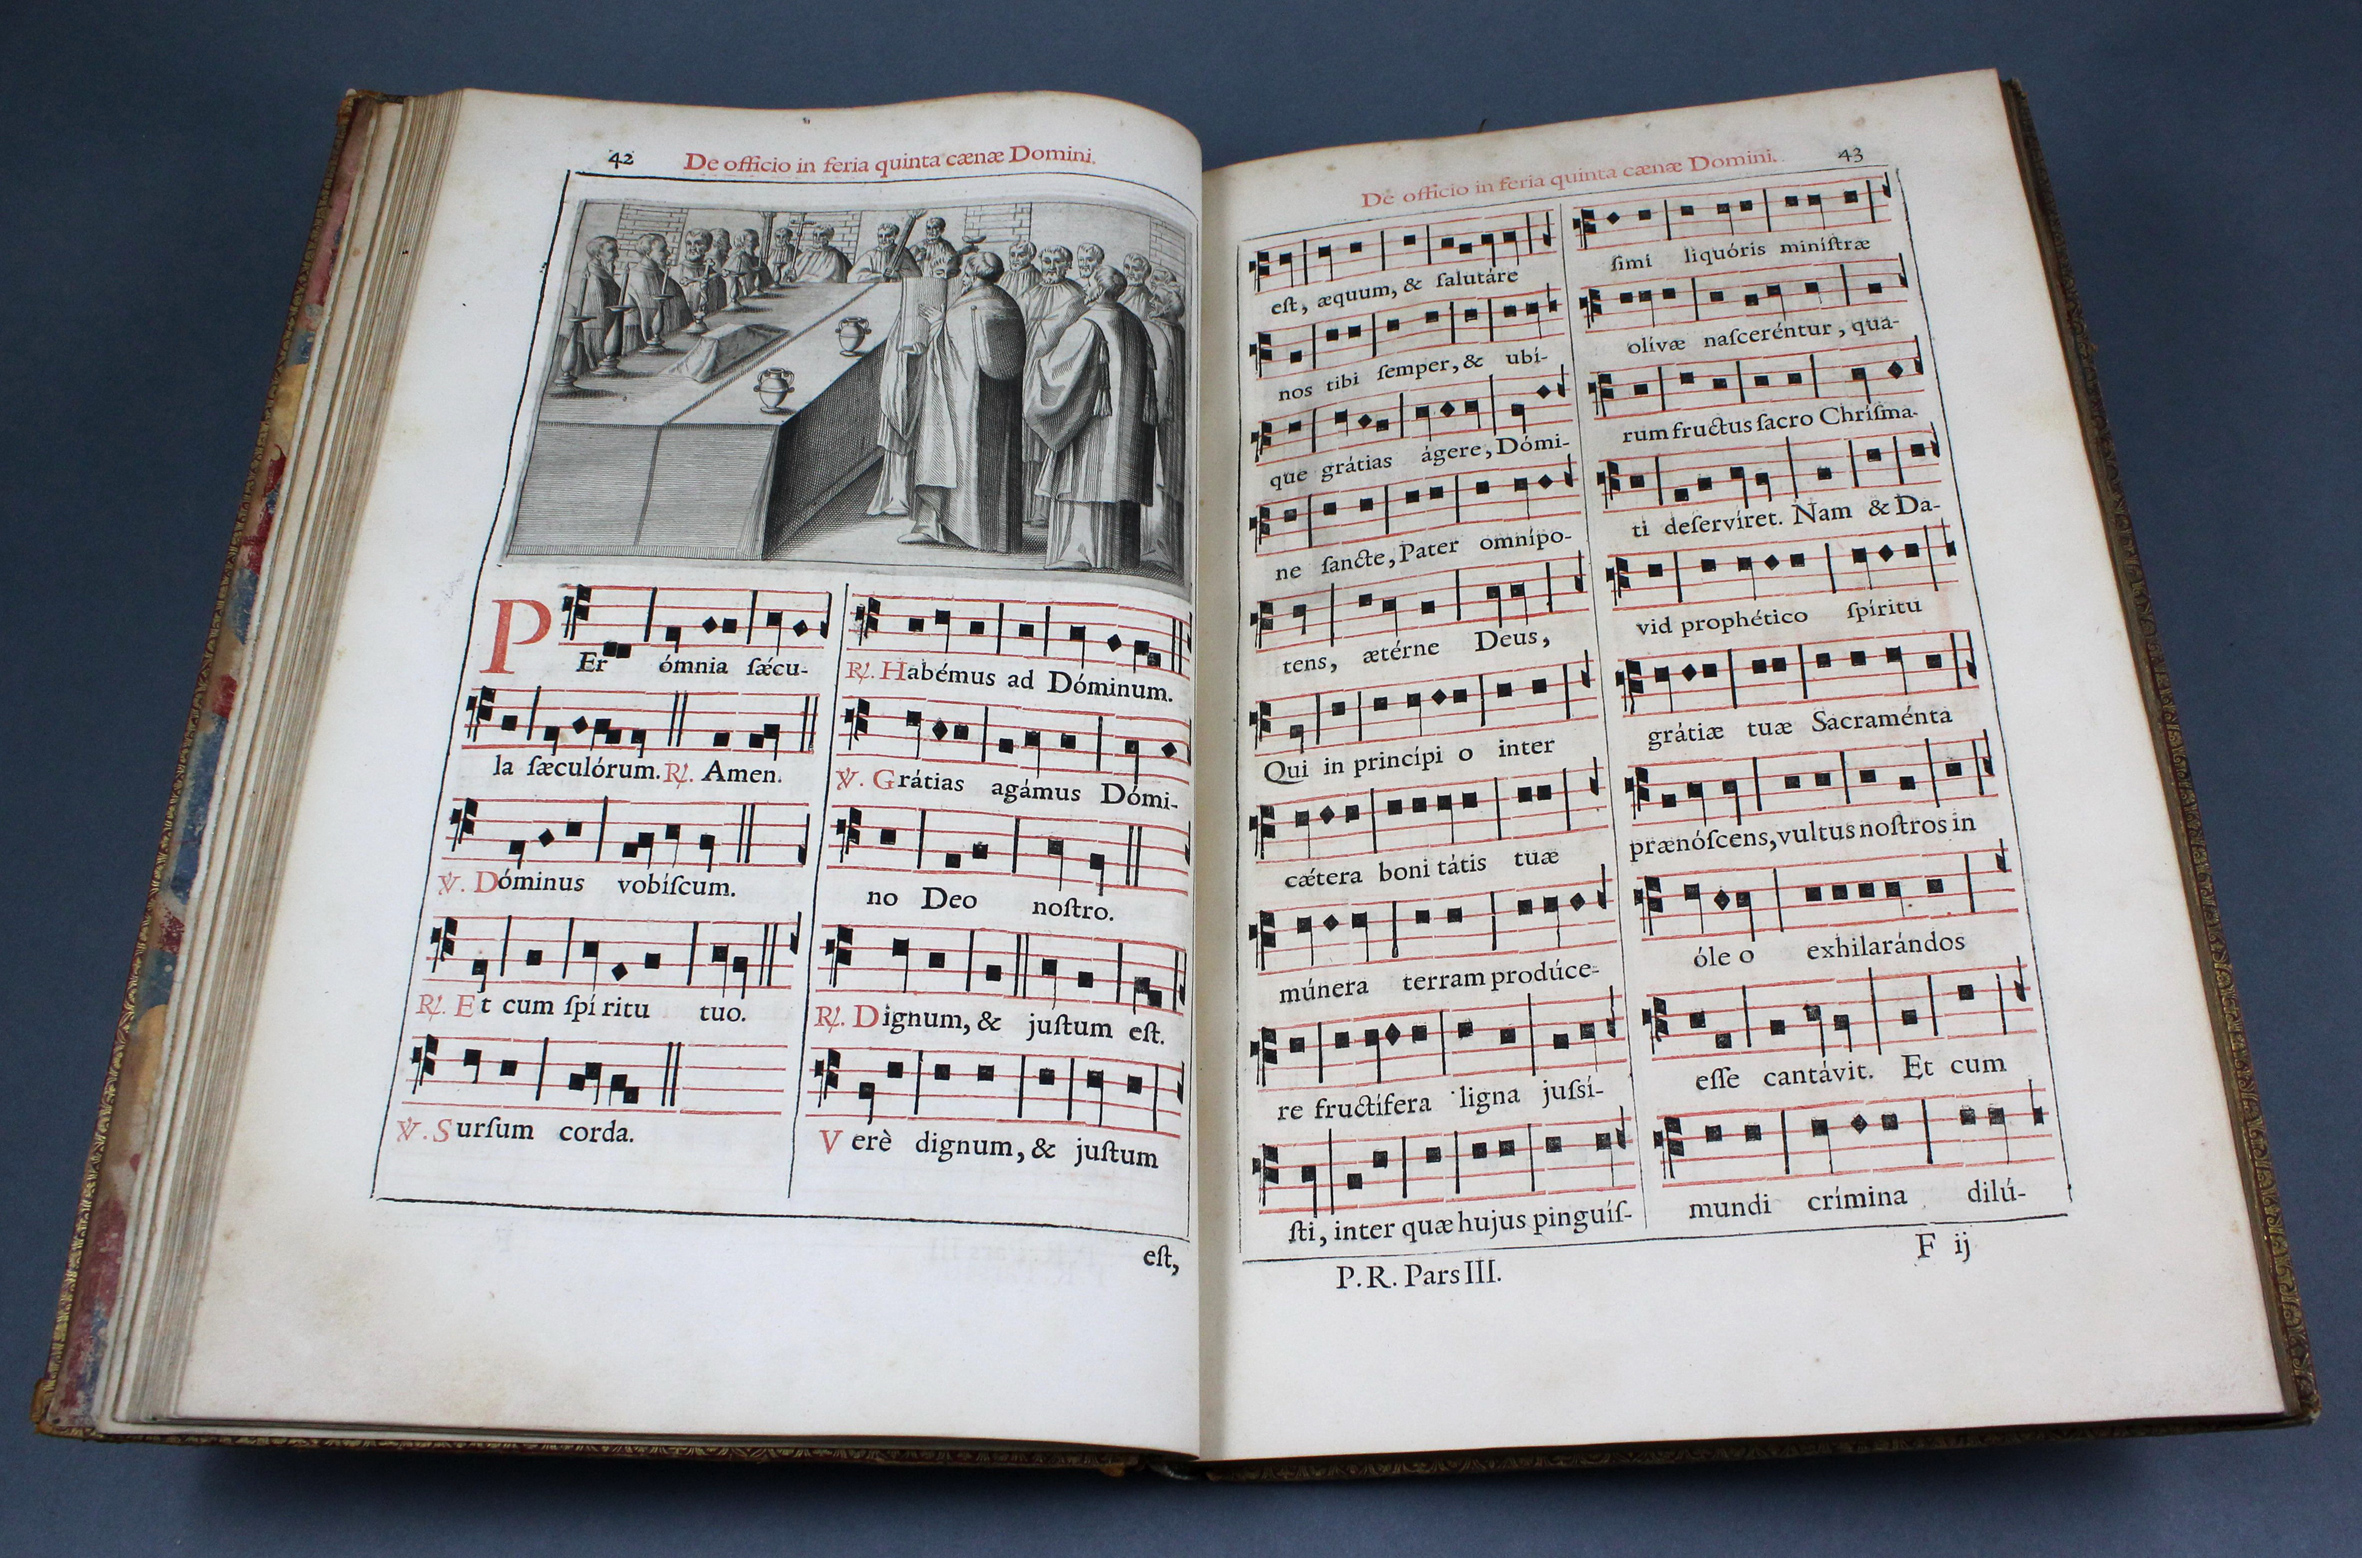 42 De officio in feria quinta cænæ Domini.
PEr ómnia ſǽcu-
la ſæculórum. ℟. Amen.
℣. Dóminus vobíſcum.
℟. Et cum ſpí ritu tuo.
℣. Surſum corda.
℟. Habémus ad Dóminum.
℣. Grátias agámus Dómi-
no Deo noſtro.
℟. Dignum, & juſtum eſt.
Verè dignum, & juſtum
eſt,
De officio in feria quinta cænæ Domini. 43
eſt, æquum, & ſalutáre
nos tibi ſemper, & ubí-
que grátias ágere, Dómi-
ne ſancte, Pater omnípo-
tens, ætérne Deus,
Qui in princípi o inter
cǽtera boni tátis tuæ
múnera terram prodúce-
re fructífera ligna juſsí-
ſti, inter quæ hujus pinguíſ-
ſimi liquóris miníſtræ
olívæ naſceréntur, qua-
rum fructus ſacro Chríſma-
ti deſervíret. Nam & Da-
vid prophético ſpíritu
grátiæ tuæ Sacraménta
prænóſcens, vultus noſtros in
óle o exhilarándos
eſſe cantávit. Et cum
mundi crímina dilú-
P. R. Pars III. F ij